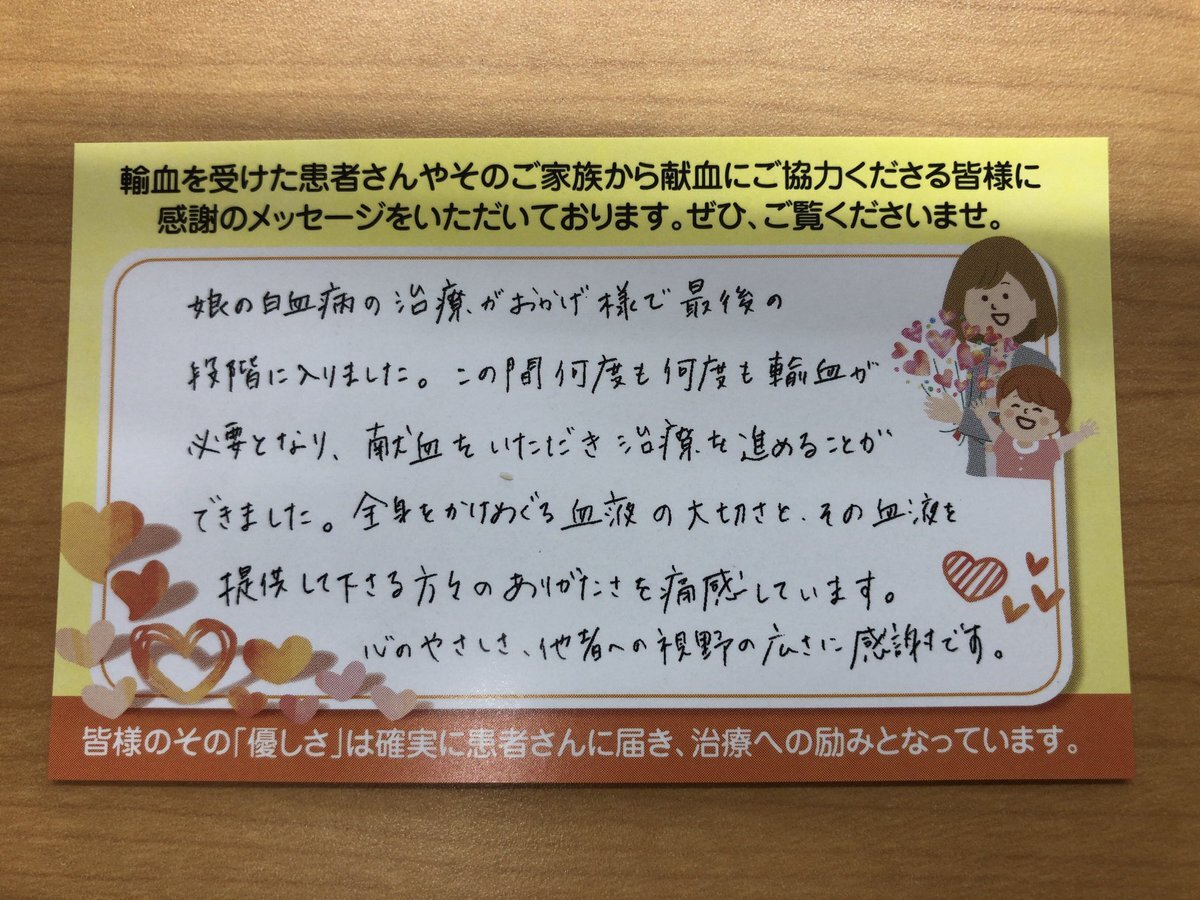 輸血を受けた患者さんやそのご家族から献血にご協力くださる皆様に
感謝のメッセージをいただいております。ぜひ、ご覧くださいませ。
娘の白血病の治療がおかげ様で最後の
段階に入りました。この間何度も何度も輸血が
必要となり、献血をいただき治療を進めることが
できました。全身をかけめぐる血液の大切さと、その血液を
提供して下さる方々のありがたさを痛感しています。
心のやさしさ、他者への視野の広さに感謝です。
皆様のその「優しさ」は確実に患者さんに届き、治療への励みとなっています。